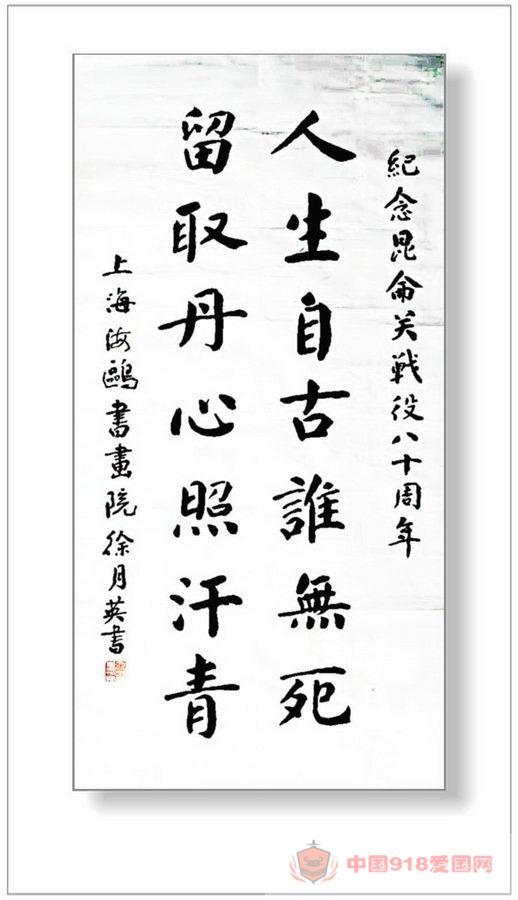 紀念昆侖关戰役八十周年
人生自古誰無死
留取丹心照汗青
上海海鷗書畫院徐月英書
中国918爱国网